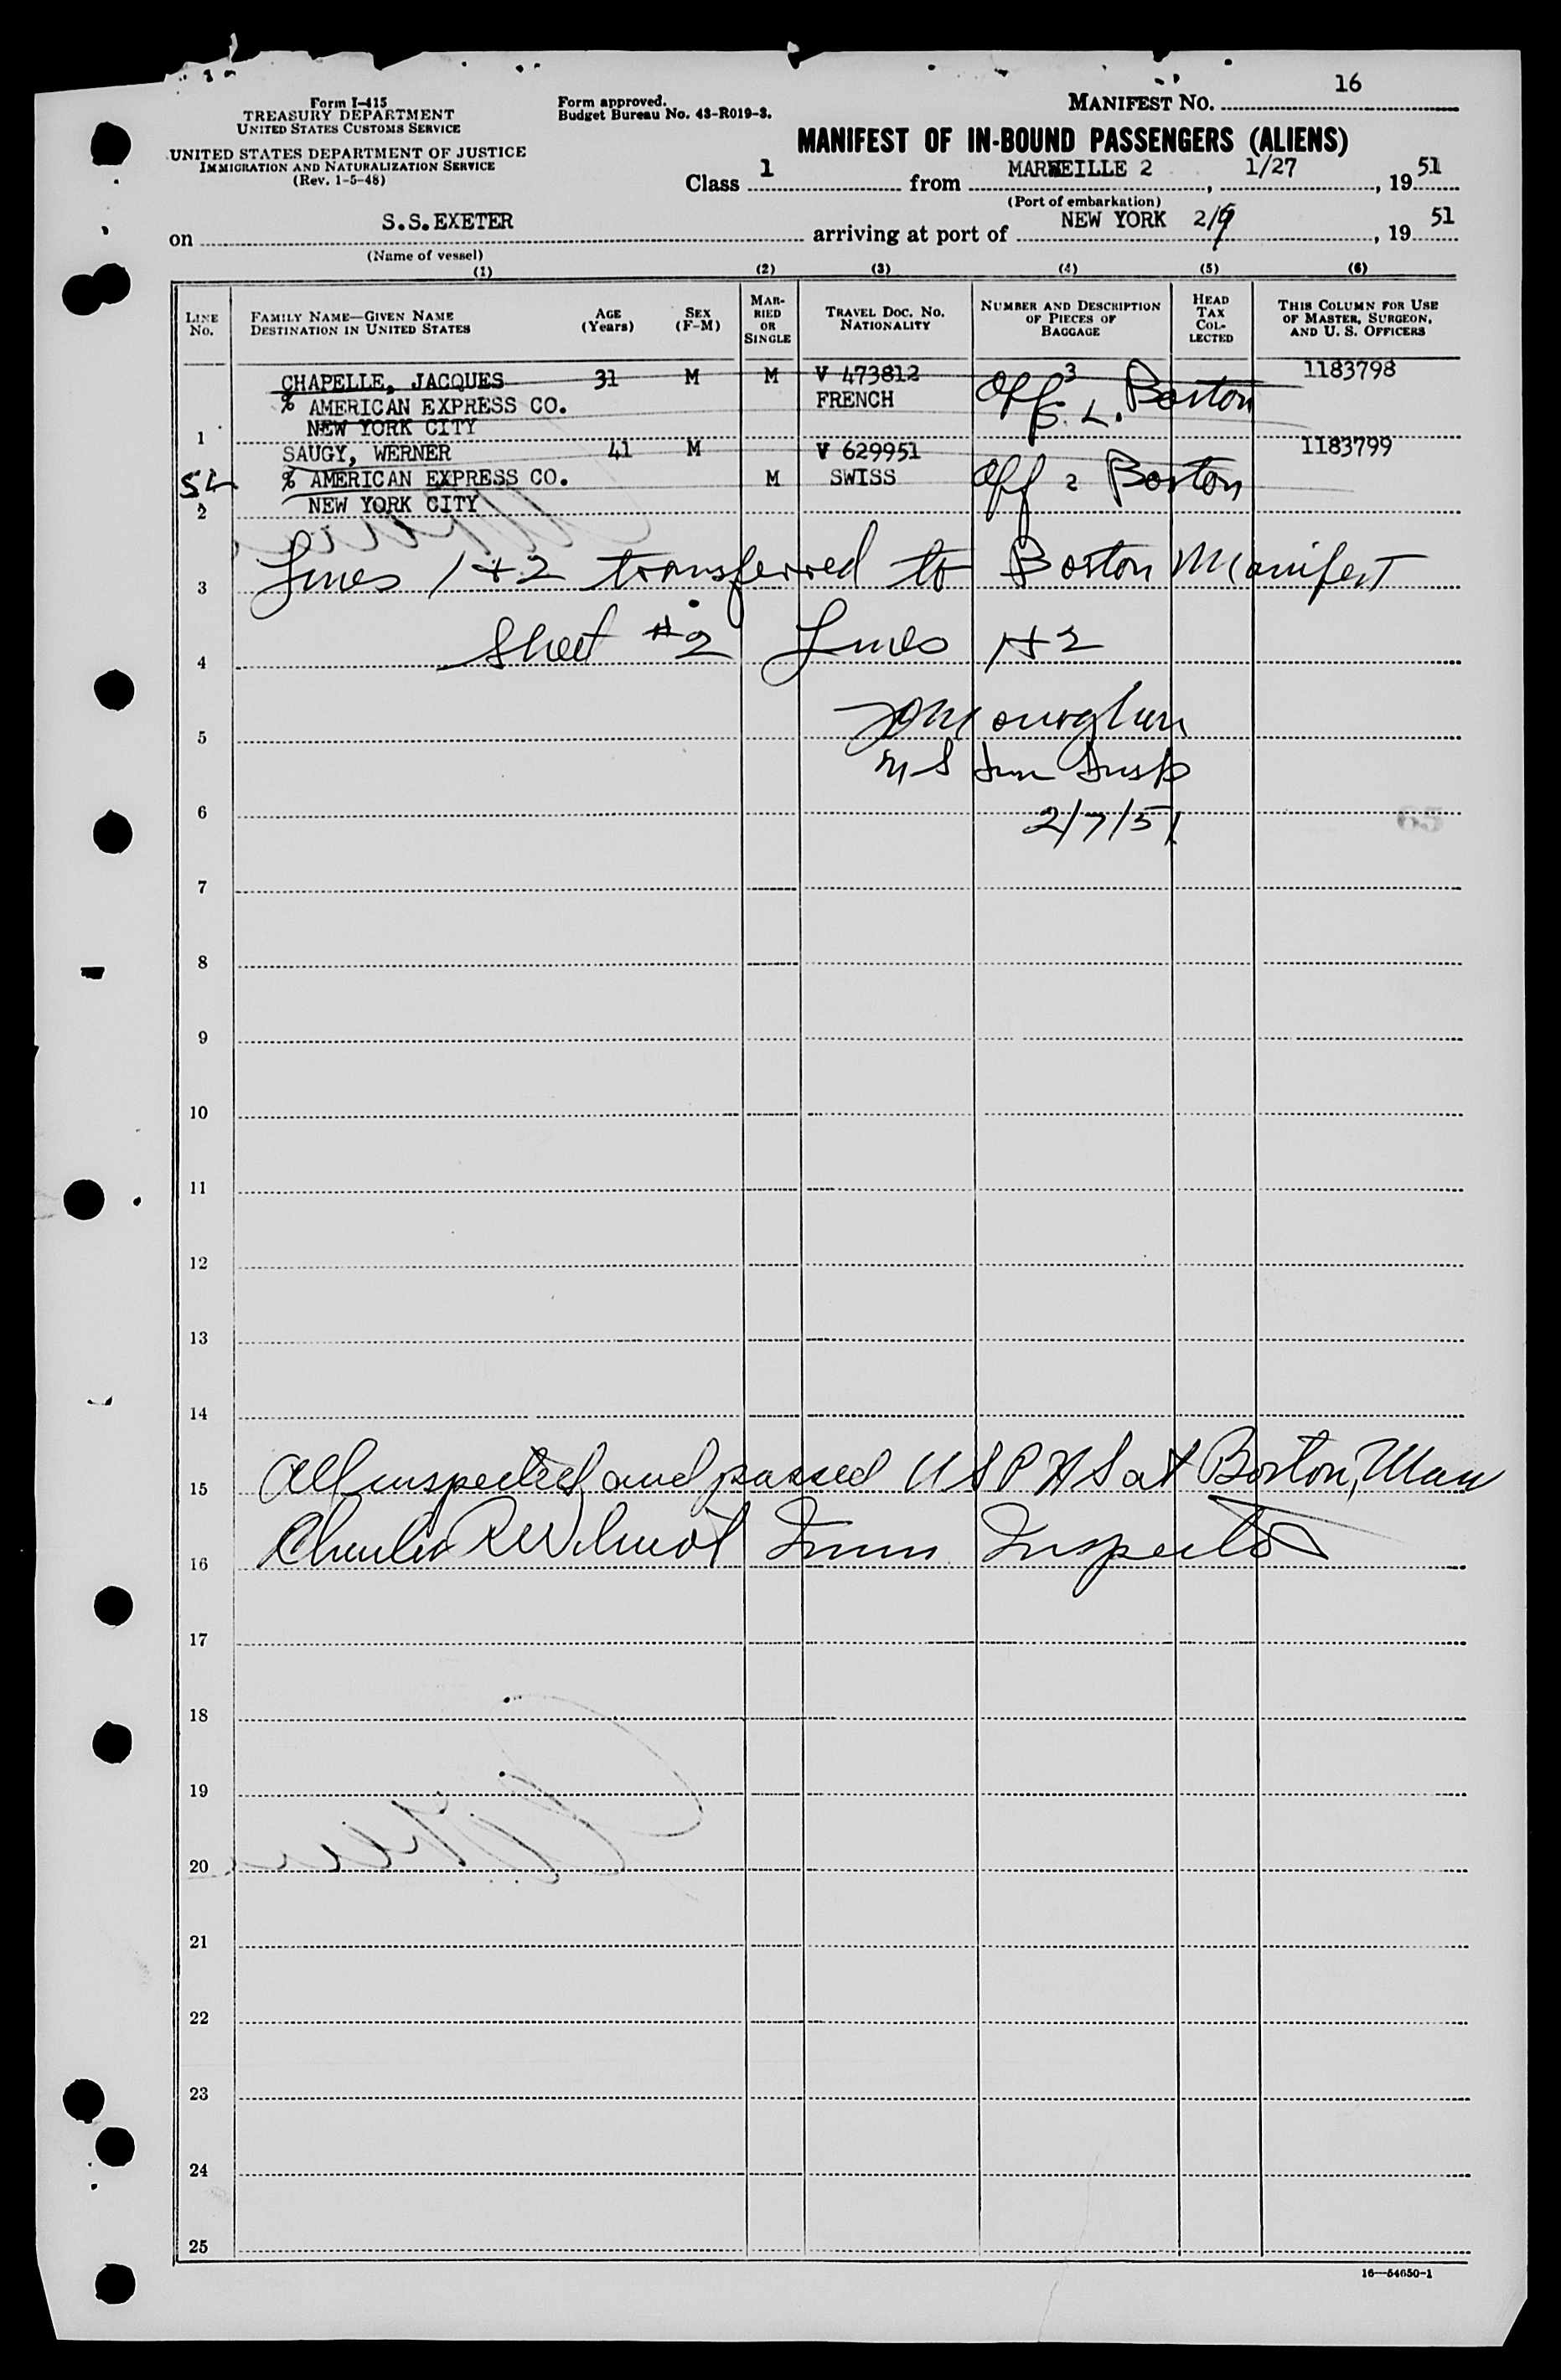 16
Form I-415
TREASURY DEPARTMENT
UNITED STATES CUSTOMS SERVICE
UNITED STATES DEPARTMENT OF JUSTICE
IMMIGRATION AND NATURALIZATION SERVICE
(Rev. 1-5-48)
Form approved.
Budget Bureau No. 43-R019-3.
MANIFEST NO.
MANIFEST OF IN-BOUND PASSENGERS (ALIENS)
Class 1 from MARSEILLE 2, 1/27, 1951
(Port of embarkation)
on S.S. EXETER arriving at port of NEW YORK 2/9, 1951
(Name of vessel)
(1) (2) (3) (4) (5) (6)
LINE No. FAMILY NAME—GIVEN NAME DESTINATION IN UNITED STATES AGE (Years) SEX (F-M) MARRIED OR SINGLE TRAVEL DOC. NO. NATIONALITY NUMBER AND DESCRIPTION OF PIECES OF BAGGAGE HEAD TAX COLLECTED THIS COLUMN FOR USE OF MASTER, SURGEON, AND U. S. OFFICERS
CHAPELLE, JACQUES 31 M M V 473812 3 1183798
% AMERICAN EXPRESS CO. FRENCH Off Boston
NEW YORK CITY
1
SAUGY, WERNER 41 M V 629951 1183799
% AMERICAN EXPRESS CO. M SWISS Off 2 Boston
2 NEW YORK CITY
3 Lines 1+2 transferred to Boston Manifest
4 Sheet #2 Lines 1+2
5
Imm Insp
6 2/7/51
7
8
9
10
11
12
13
14
15 All inspected and passed USPHS at Boston, Mass
16 Charles R Wilmot Imm Inspector
17
18
19
20
21
22
23
24
25
16—54650-1